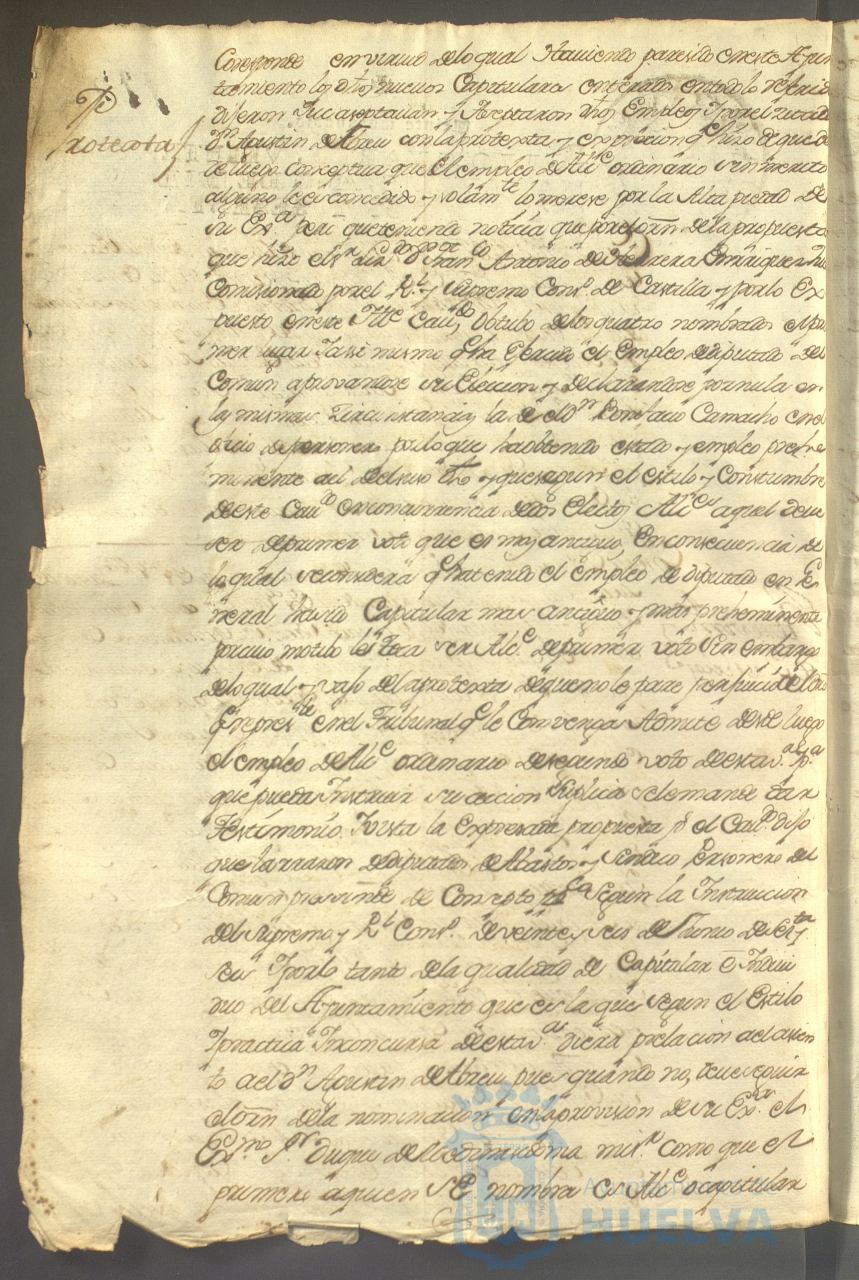 Corresponde en virtud delo qual Haviendo paresido eneste Ayun
tamiento los dhos nuevos Capitulares enterados en todo lo referido
dijeron que aseptavan y Aceptaron dhos Empleos Y por el citado
Protexta
Dn Agustin de Abreu con la protexta y expresion qe hizo de que des
de luego conceptua que el empleo de Alce ordinario sin merito
alguno le es concedido y solamte lo merese por la Alta piedad de
su Exa pero que teniendo noticia que por el orn dela propuesta
que hizo el sr Franco Antonio de Herrera Enriquez
Comisionado por el Rl y Supremo Conso de Castilla y por lo Ex
puesto en este Iltre Cavdo Obtubo de los quatro nombrados el pri
mer lugar Y assi mismo qe ha exercido el Empleo de diputado del
Comun aprovandose su Eleccion y declarandose por nula en
las mismas circunstancias la de Dn Bonifacio Camacho en el
oficio de personero por lo que ha obtenido estado y empleo prehe
minente al del suso dho y que segun el estilo y Constumbre
de este Cavdo en concurrencia de dos electos Alces aquel deve
ser de primer voto que es mas antiguo, En consecuencia de
lo qual se considera qe ha tenido el empleo de diputado en Ge
neral ha sido Capitular mas antiguo y mas preheminente
por cuio motibo le toca ser Alce de primer voto Sin embargo
de lo qual y vajo de la protexta de que no le pare perjuicio
en el Tribunal qe le Convenga Admite desde luego
el empleo de Alce ordinario de segundo voto de esta Va Ya
que pueda Instruir su accion Suplica se le mande dar
Testimonio Y vista la Expresada propuesta pr el Cavdo dijo
que la rrazon de diputados de Abastos y Sindico Personero del
Comun de Consepto Segun la Instruccion
del Supremo y Rl Conso de veinte y seis de Junio de
seis Y por lo tanto de la qualidad de Capitular e Indivi
duo del Ayuntamiento que es la que segun el Estilo
Y practica Inconcursa de esta Va diera prelacion al asien
to al dn Agustin de Abreu, pues quando no, deve seguir
el orn de la nominacion, en la provision de su Exa el
Exmo Sr Duque de Medinasidonia mi Sr como que el
primero a quien S E nombra es Alce o capitular
Ayuntamiento de
HUELVA